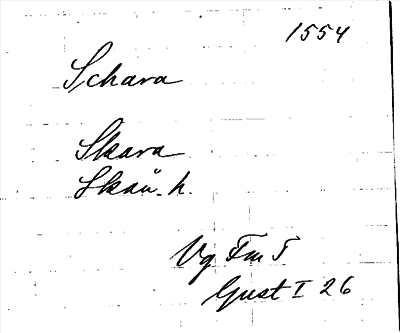 1554
Schara
Skara
Skån. h.
Vg Fm T
Gust I 26